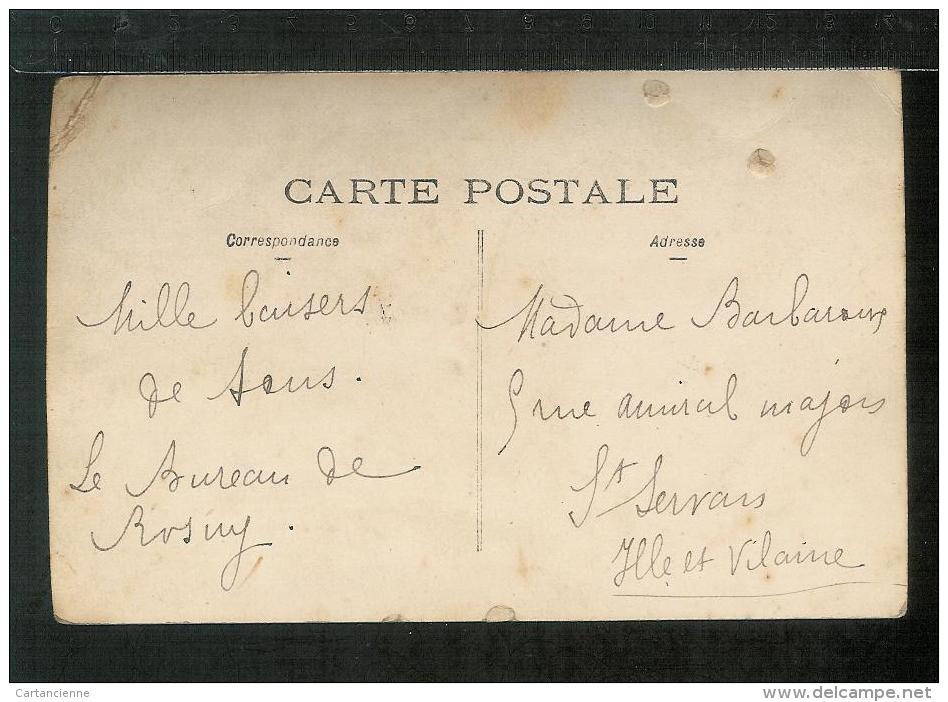 0 1 2 3 4 5 6 7 8 9 10 11 12 13 14
CARTE POSTALE
Correspondance
Mille baisers
de tous.
Le Bureau de
Rosny.
Adresse
Madame Barbaroux
5 rue amiral majors
St Servan
Ille et Vilaine
Cartancienne
www.delcampe.net